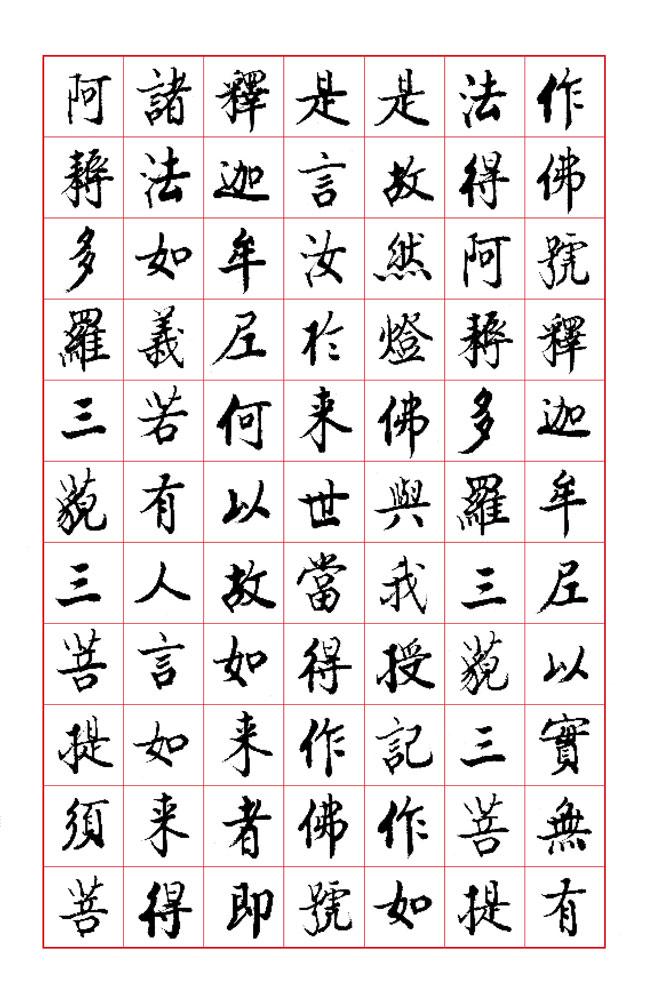 作佛號釋迦牟尼以實無有
法得阿耨多羅三藐三菩提
是故然燈佛與我授記作如
是言汝於来世當得作佛號
釋迦牟尼何以故如来者即
諸法如義若有人言如来得
阿耨多羅三藐三菩提須菩